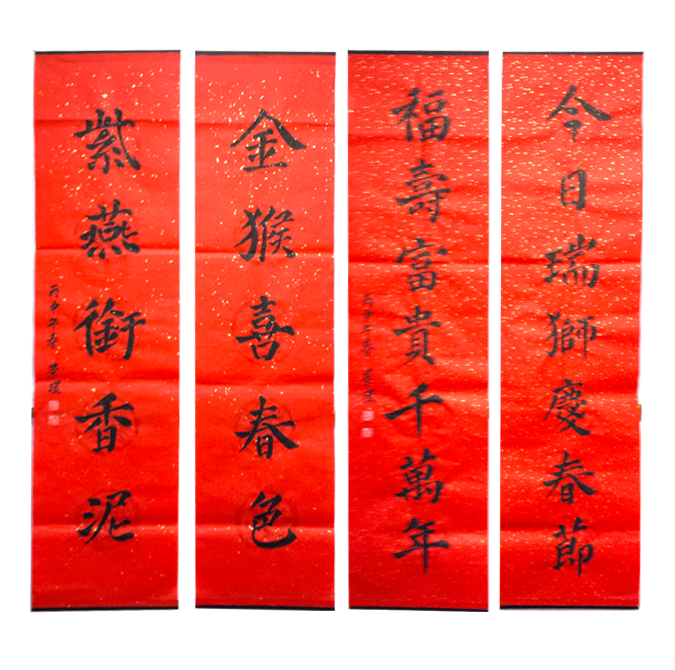 今日瑞獅慶春節
福壽富貴千萬年
丙申年春
金猴喜春色
紫燕銜香泥
丙申年春